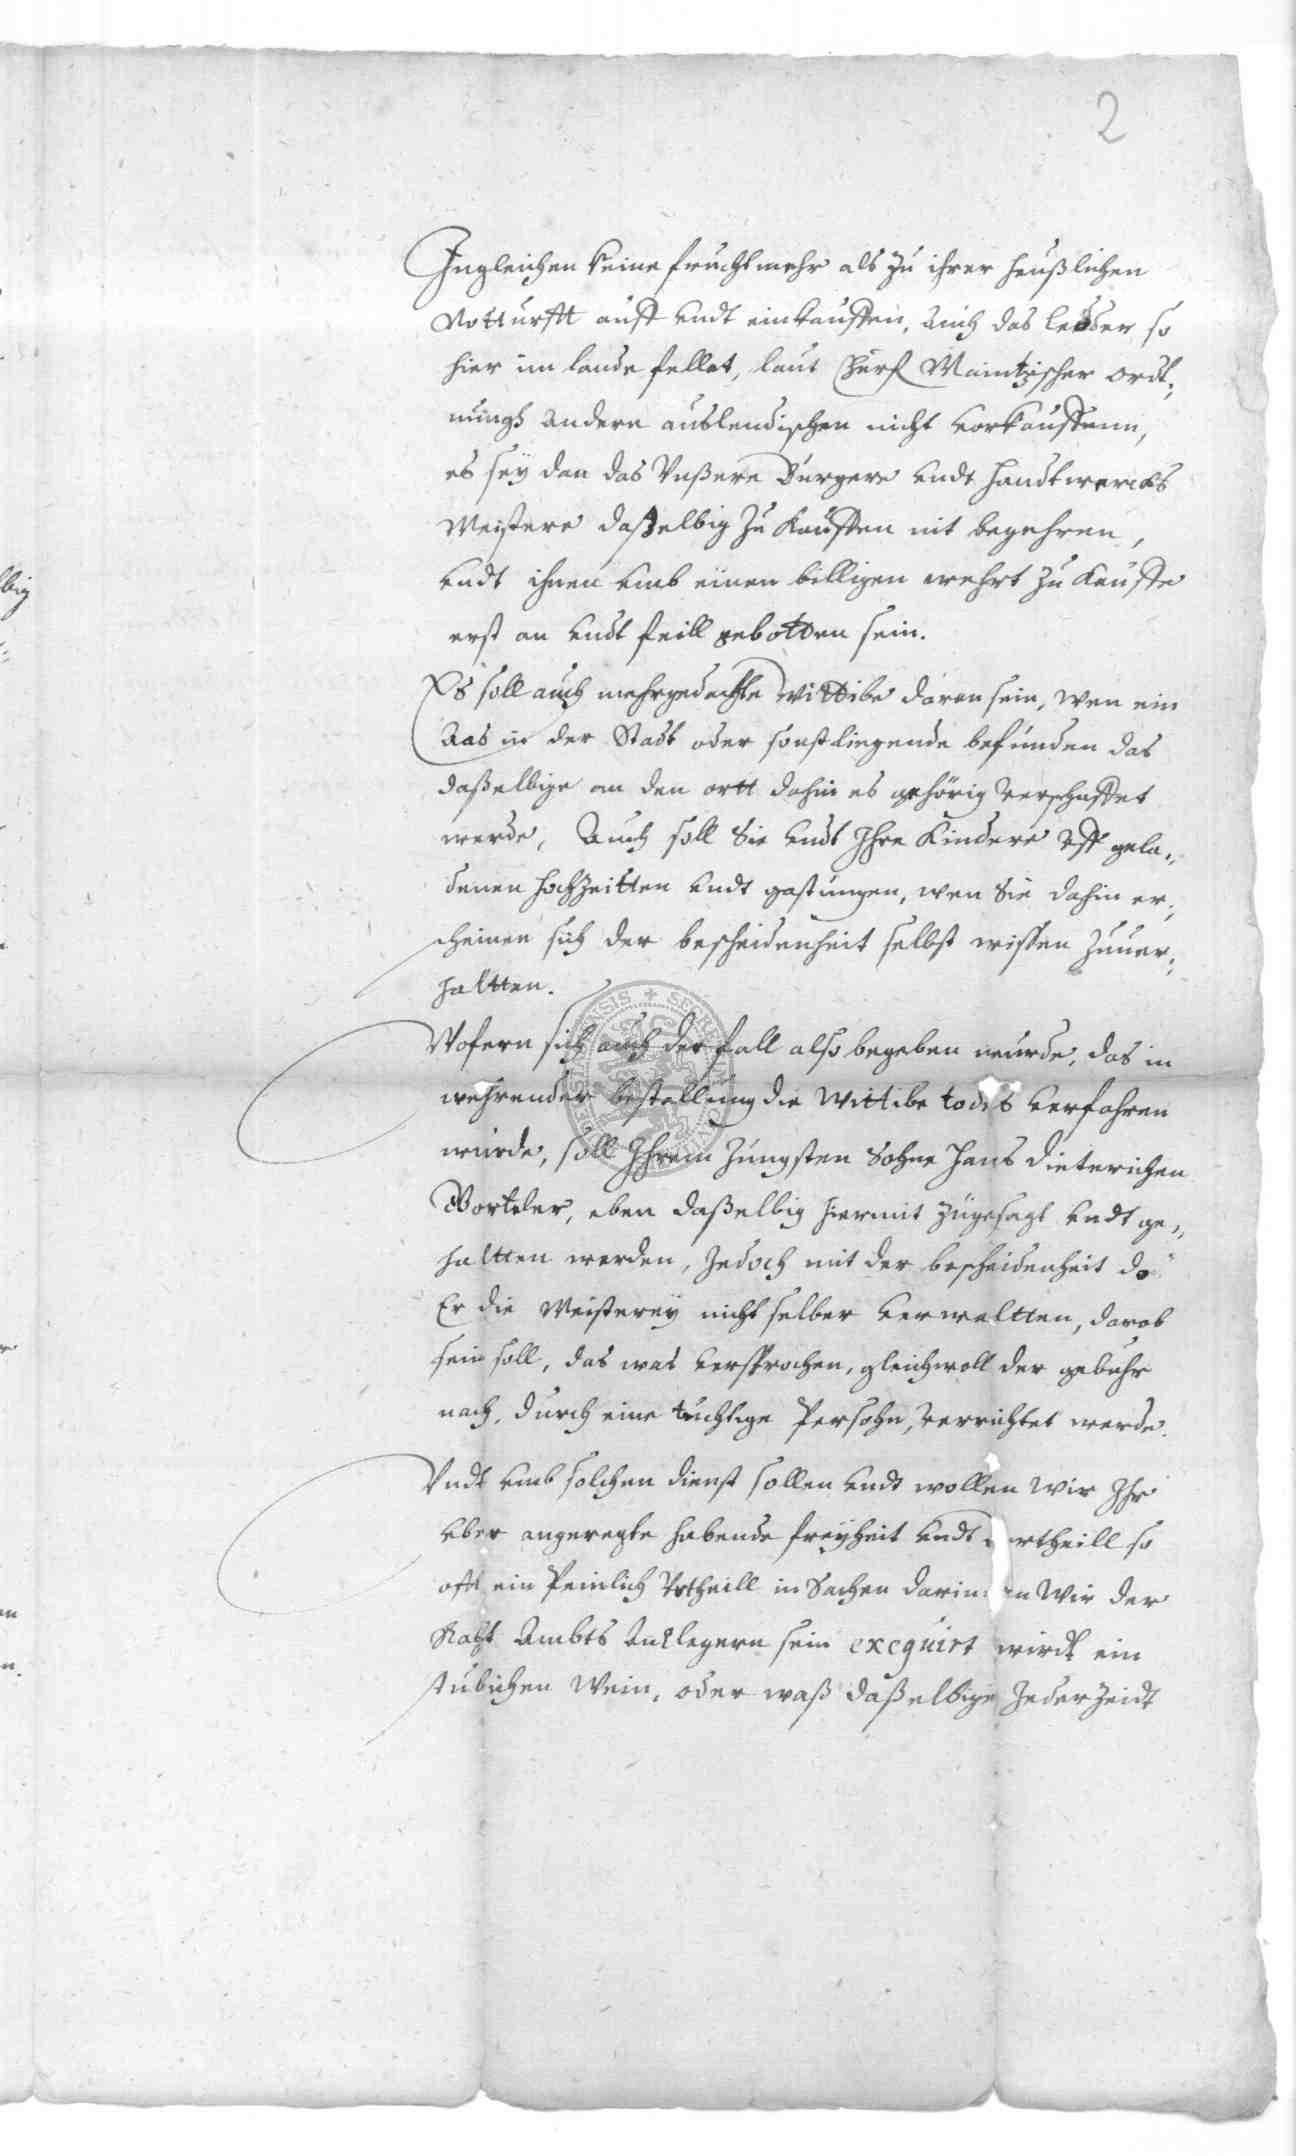 2
Ingleichen keine frucht mehr als zu ihrer heußlichen
Notturfft auff undt einkauffen, auch das ledder so
hier im lande fellet, laut Churf Maintzischer ordt,,
nungh andern auslendischen nicht verkauffenn,
es sey dan das Unßere Bürgere undt handtwercks
Meistere daßelbig zu kauffen nit begehren,
undt ihnen umb einen billigen wehrt zu kauffe
erst an undt feill gebotten sein.
Es soll auch mehrgedachte wittibe daran sein, wen ein
Aas in der Stadt oder sonst liegende befunden das
daßelbige an den ortt dahin es gehörig verschaffet
werde, Auch soll Sie undt Ihre Kindere uff gela,,
denen hochzeitten undt gastungen, wen Sie dahin er,,
scheinen sich der bescheidenheit selbst wissen zuuer,,
haltten.
Wofern sich auch der fall also begeben wurde, das in
wehrender bestallung die Wittibe todts verfahren
wurde, soll Ihrem Jüngsten Sohne Hans Dieterichen
eben daßelbig hiermit zugesagt undt ge,,
haltten werden, Jedoch mit der bescheidenheit do
Er die Meisterey nicht selber verwaltten, darob
sein soll, das was versprochen, gleichwoll der gebuhr
nach, durch eine tuchtige Persohn, verrichtet werde.
Undt umb solchen dienst sollen undt wollen wir Ihr
uber angeregte habende freyheit undt rtheill so
offt ein Peinlich Urtheill in Sachen darin n Wir der
Raht Ambts Anklegern sein exequirt wirdt ein
stubichen Wein, oder waß daßelbige Jederzeidt